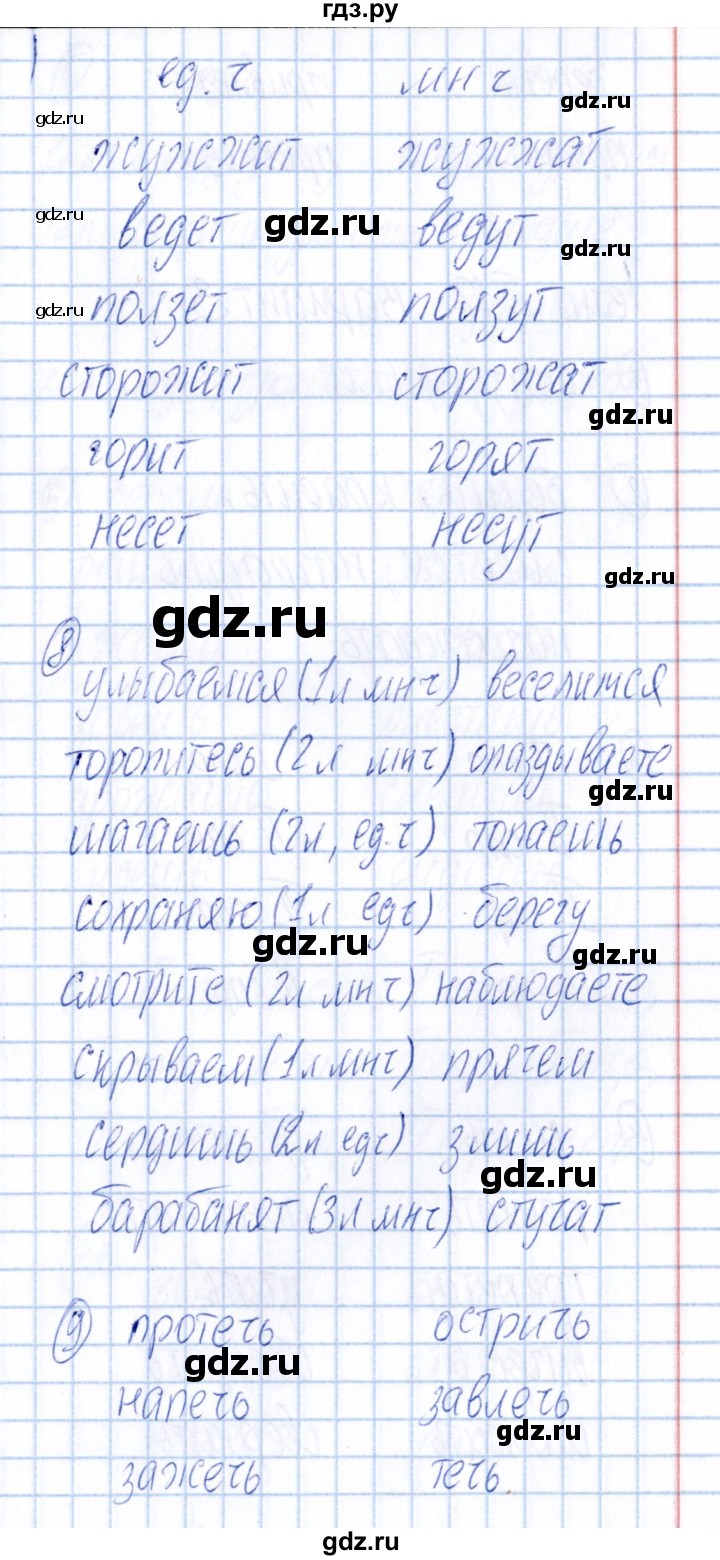 гдз.ру
ед. ч мн ч
gdz.ru
gdz.ru
жужжит жужжат
gdz.ru
gdz.ru
ведет ведут
gdz.ru
gdz.ru
ползет ползут
сторожит сторожат
gdz.ru
горит горят
несет несут
gdz.ru
gdz.ru
8
улыбаемся (1л мн ч) веселимся
торопитесь (2л мн ч) опаздываете
gdz.ru
шагаешь (2л, ед. ч) топаешь
сохраняю (1л ед ч) берегу
gdz.ru
gdz.ru
смотрите (2л мн ч) наблюдаете
скрываем (1л мн ч) прячем
сердишь (2л ед ч) злишь
gdz.ru
барабанят (3л мн ч) стучат
9 протечь остричь
gdz.ru
напечь завлечь
gdz.ru
зажечь течь
gdz.ru